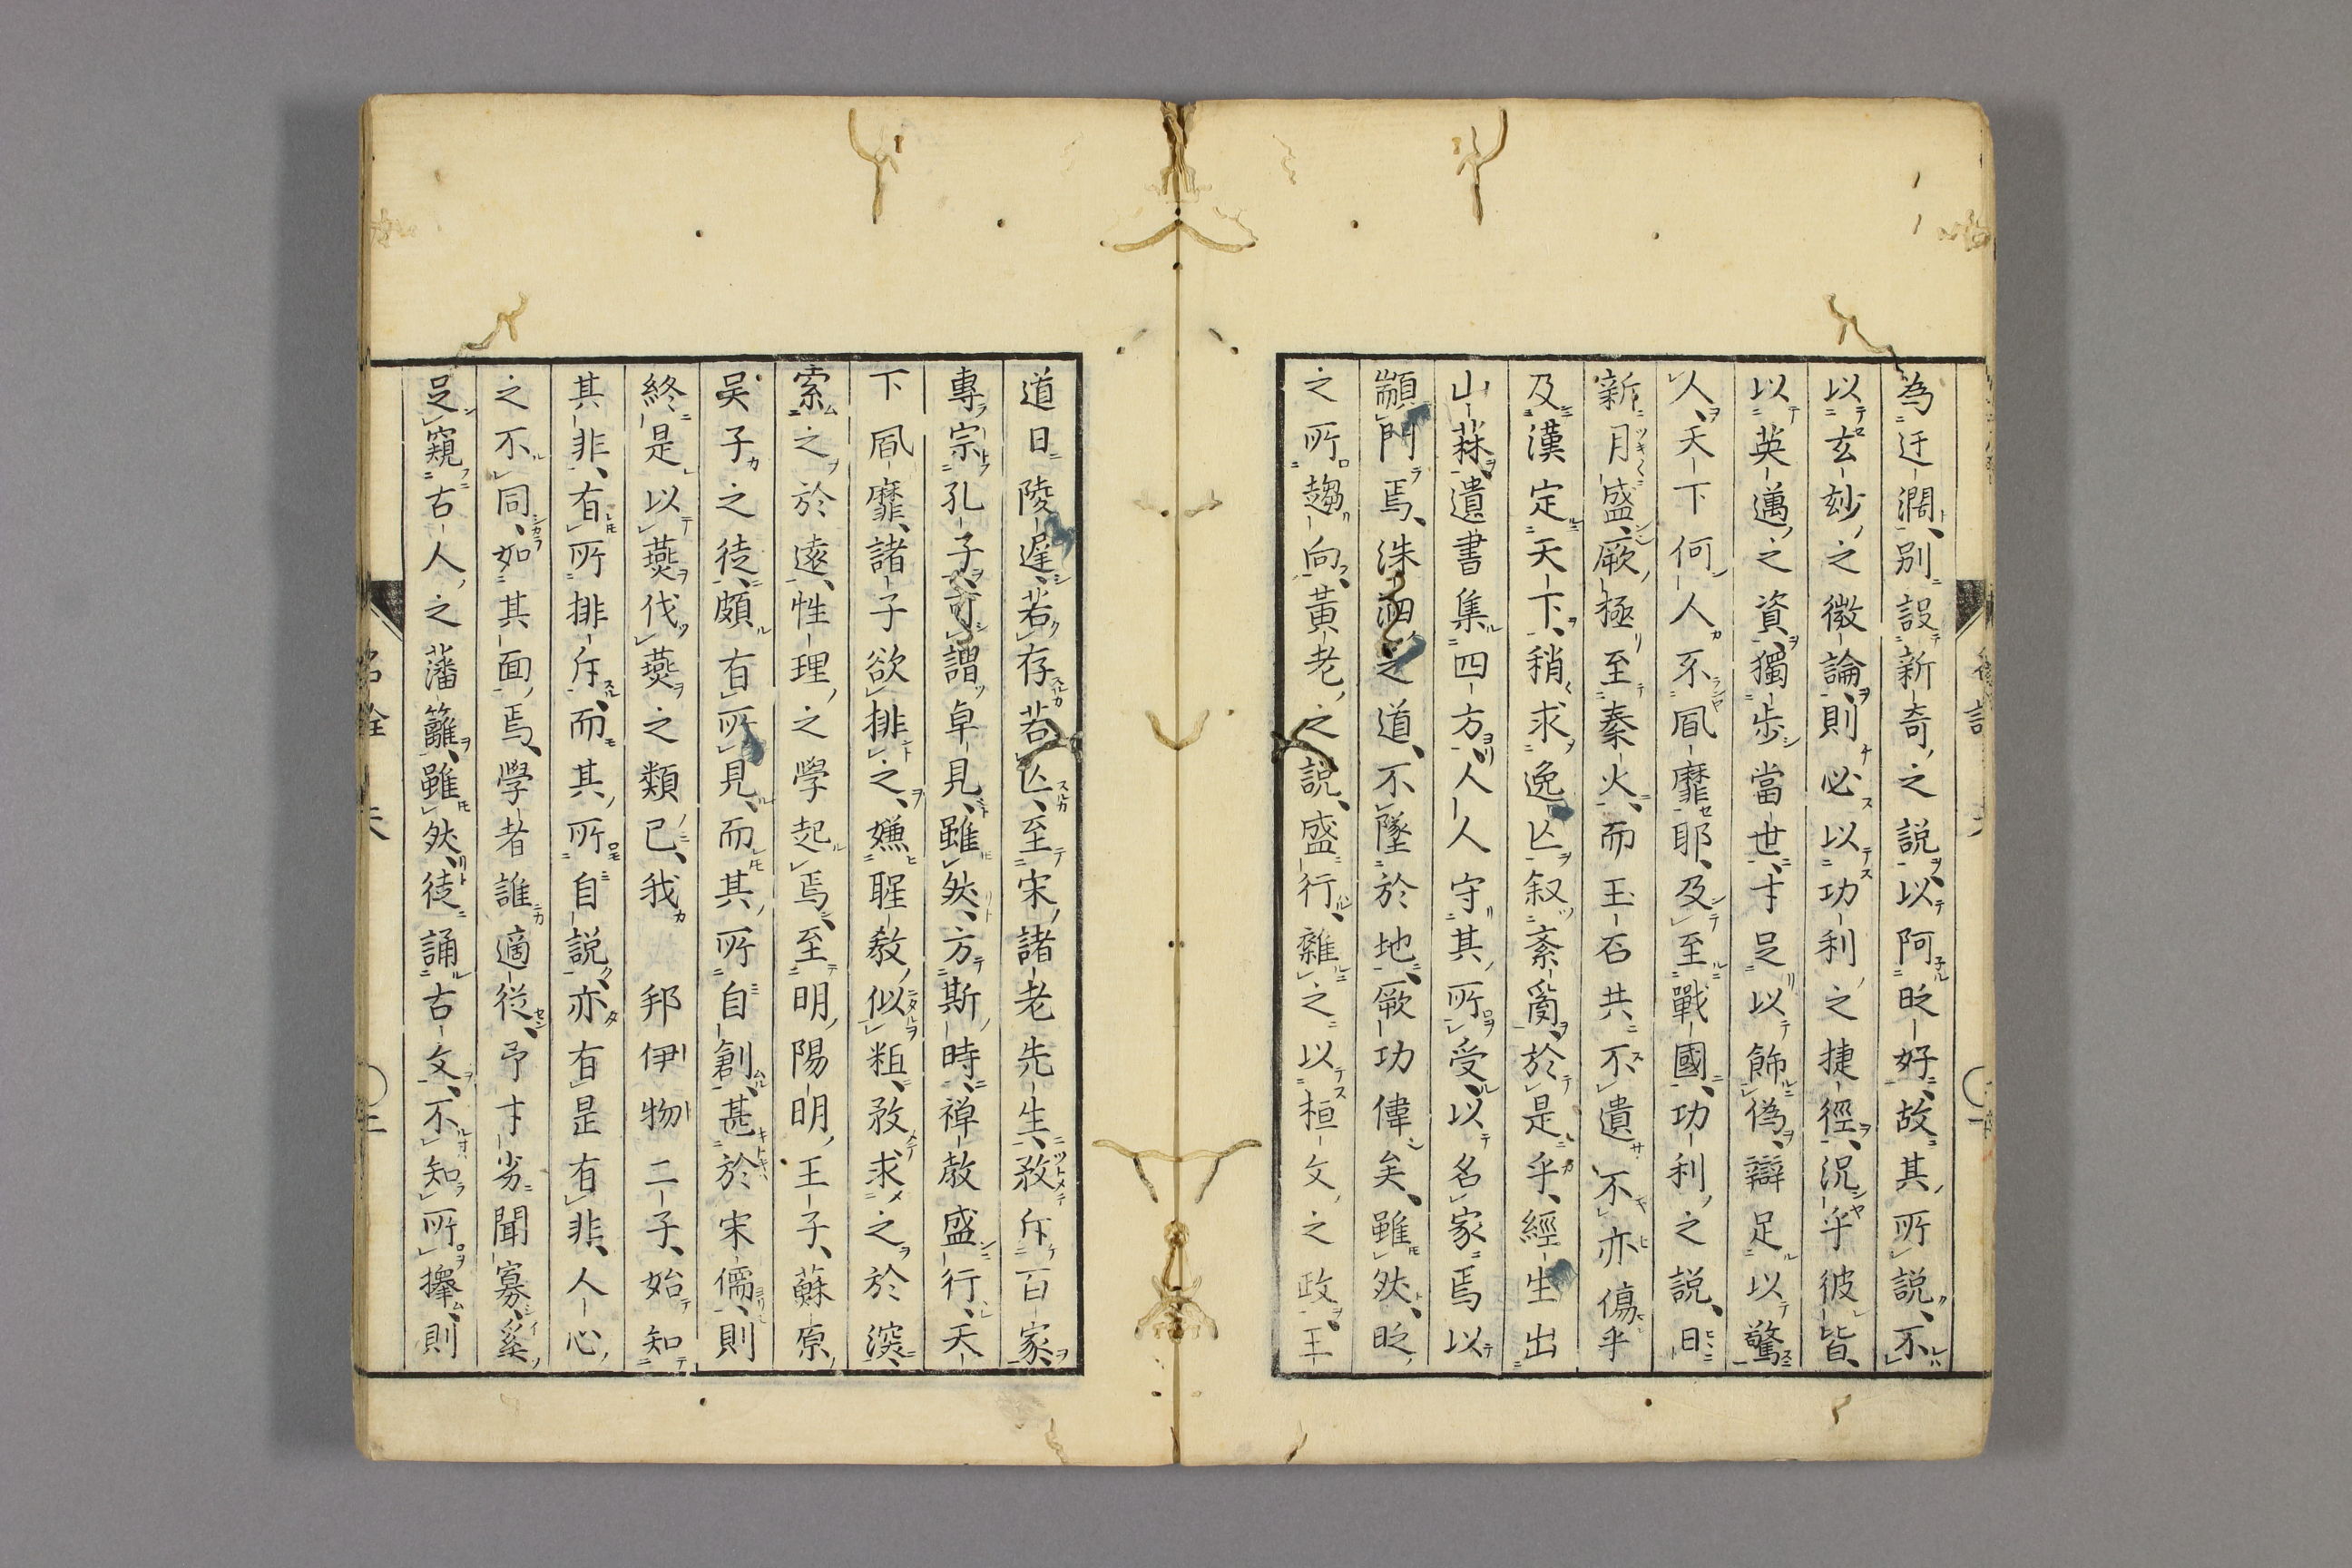 為迂闊別設新奇之說以阿眨好故其所說不
以玄玅之微論則必以功利之捷徑況乎彼皆
以英邁之資獨步當世才足以飾偽辯足以驚
人天下何人不凮靡耶及至戰國功利之說日
新月盛厥極至秦火而玉石共不遺不亦傷乎
及漢定天下稍求逸亾叙紊簡於是乎經生出
山藂遺書集四方人人守其所受以名家焉以
顓門焉洙泗之道不墜於地厥功偉矣雖然眨
之所趨向黃老之說盛行雜之以桓文之政王
道日陵遅若存若亾至宋諸老先生敄斥百家
專宗孔子可謂卓見雖然方斯時禪教盛行天
下凮靡諸子欲排之嫌聖教似粗敄求之於深
索之於遠性理之學起焉至明陽明王子蘇原
吳子之徒頗有所見而其所自創甚於宋儒則
終是以燕伐燕之類已我 邦伊物二子始知
其非有所排斥而其所自說亦有是有非人心
之不同如其面焉學者誰適從予才劣聞寡奚
足窺古人之藩籬雖然徒誦古文不知所擇則